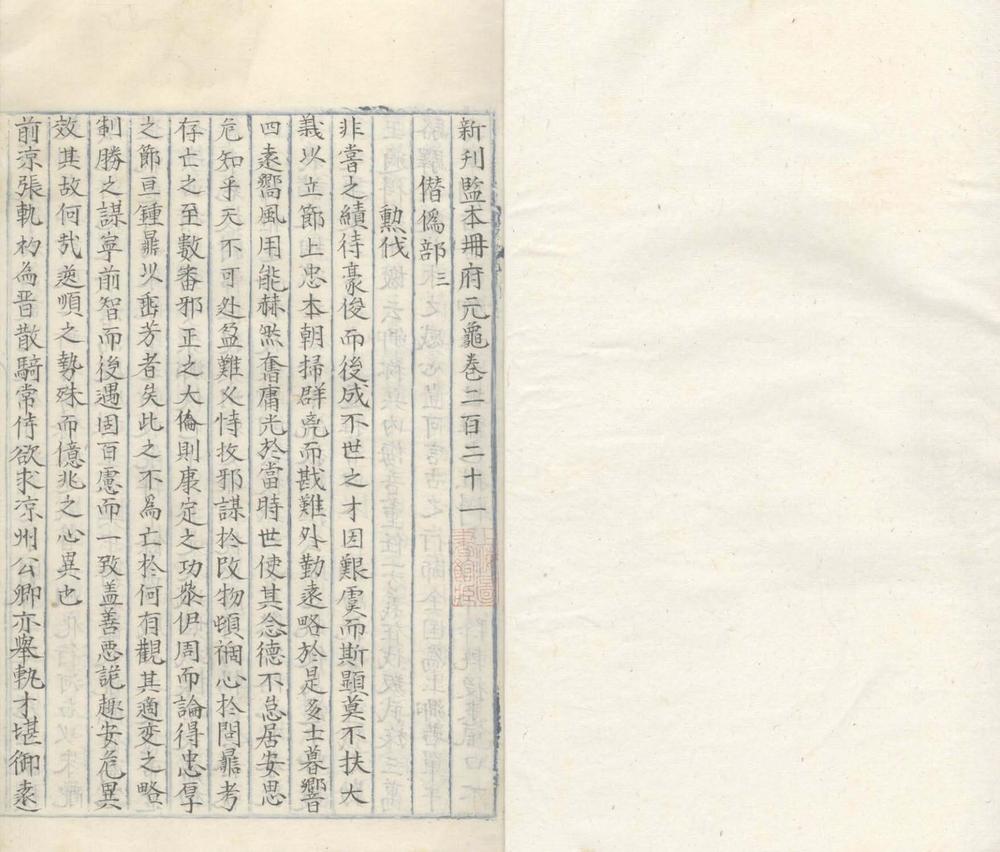 新刊監本冊府元龜卷二百二十一
僭僞部三
勲伐
非嘗之績待豪俊而後成不世之才因艱虞而斯顯莫不扶大
義以立節上忠本朝掃群兇而戡難外勤遠略於是多士暮響
四遠嚮風用能赫然奮庸光於當時世使其念德不怠居安思
危知乎天不可処盈難乆恃收邪謀扵改物頓禍心扵問鼎考
存亡之至數審邪正之大倫則康定之功㮣伊周而論得忠厚
之節亘鍾鼎以畱芳者矣此之不為亡扵何有觀其適变之略
制勝之謀寧前智而後遇固百慮而一致盖善悪詭趣安危異
效其故何㢤逆順之勢殊而億兆之心異也
前凉張軌初為晋散騎常侍欲求凉州公卿亦舉軌才堪御逺